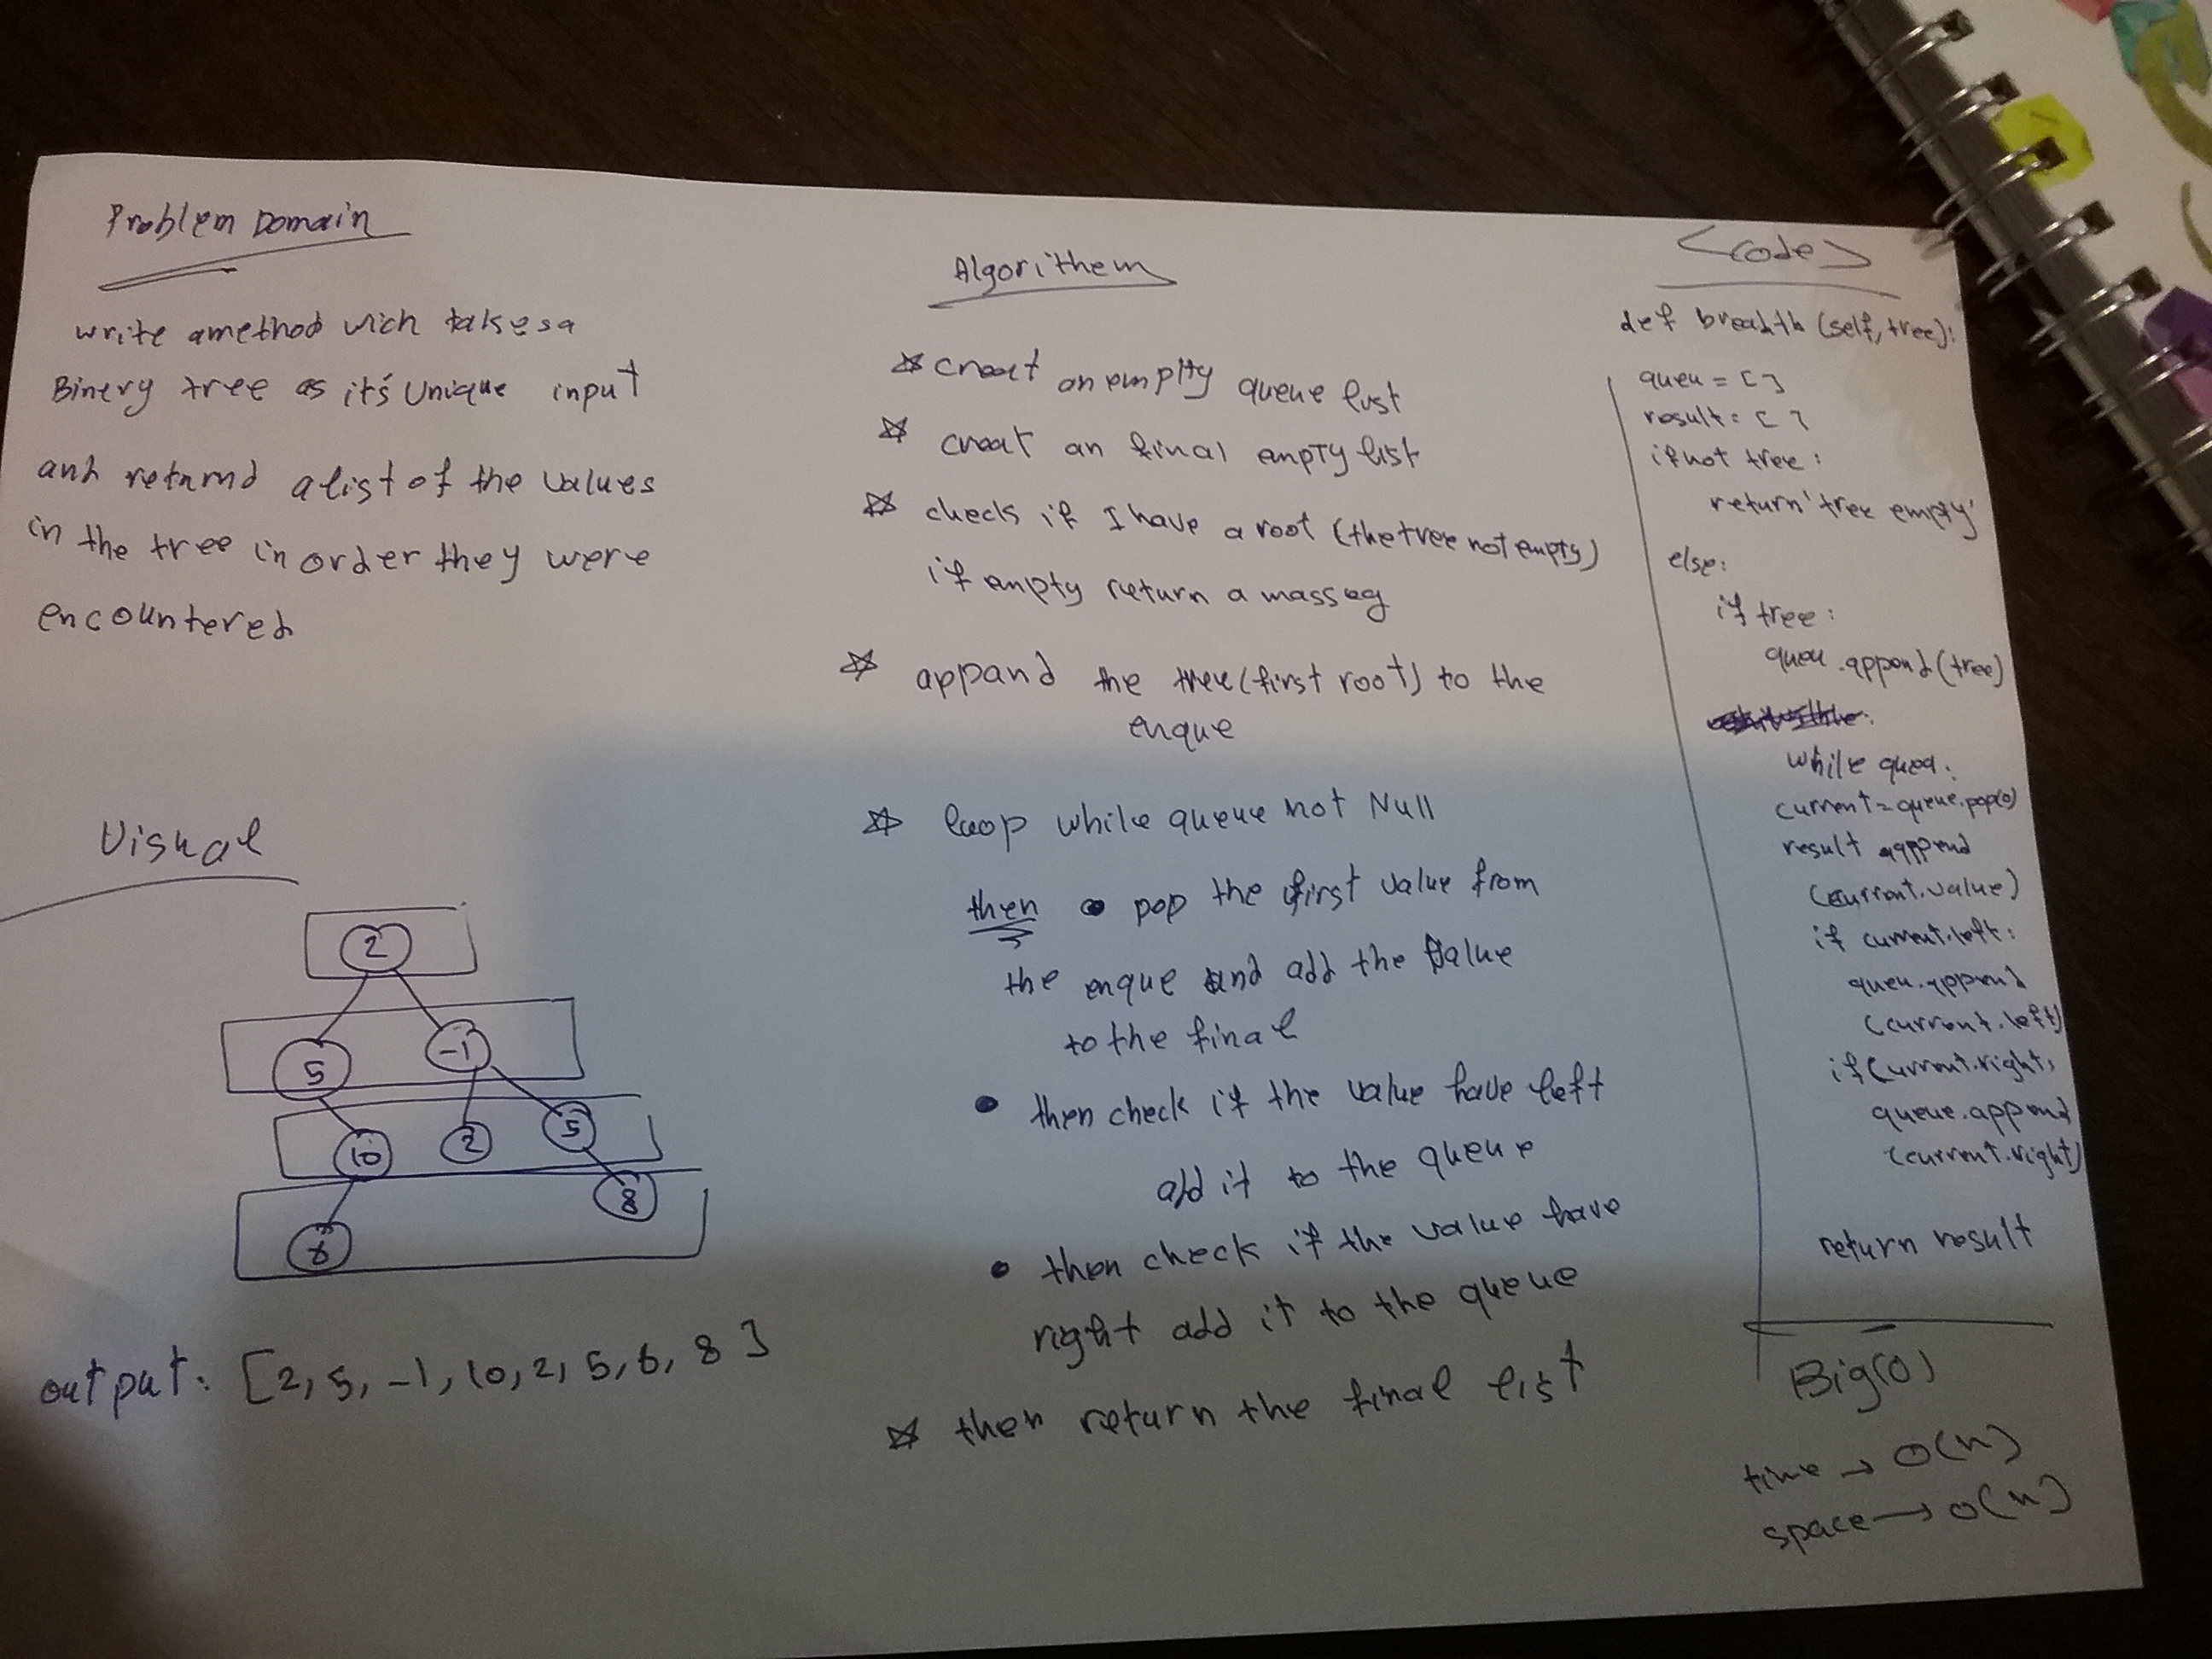 Problem Domain
write amethod wich takesa
Binery tree as it's Unique input
and retarnd alist of the values
in the tree in order they were
encountered
Visual
2
5 -1
10 2 5
6 8
output: [2, 5, -1, 10, 2, 5, 6, 8]
Algorithem
creat an emplty queue list
creat an final empty list
checks if I have a root (the tree not empty)
if empty return a masseg
appand the tree (first root) to the
enque
loop while queue not Null
then • pop the first value from
the enque and add the value
to the final
• then check if the value have left
add it to the queue
• then check if the value have
right add it to the queue
then return the final list
<code>
def breadth (self, tree):
queu = []
result = []
if not tree:
return 'tree empty'
else:
if tree:
queu.append(tree)
while queu:
current = queue.pop(0)
result append
(current.value)
if current.left:
queu.append
(current.left)
if current.right:
queue.append
(current.right)
return result
Big(O)
time → O(n)
space → O(n)